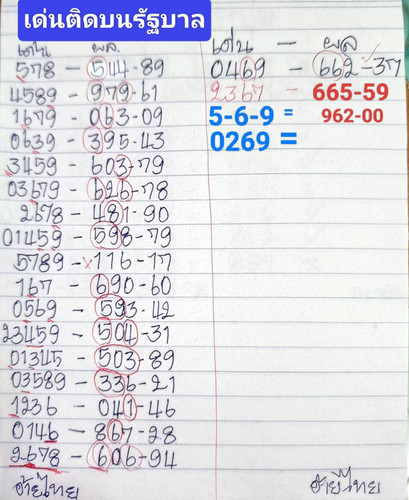 เด่นติดบนรัฐบาล
เด่น ผล.
578 - 544-89
4589 - 979-61
1679 - 063-09
0639 - 395-43
3459 - 603-79
03679 - 626-78
2678 - 481-90
01459 - 598-79
5789 - x116-17
167 - 690-60
0569 - 593-42
23459 - 504-31
01345 - 503-89
03589 - 336-21
1236 - 041-46
0146 - 867-28
2678 - 606-94
ฮ้ายไทย
เด่น - ผล
0469 - 662-37
2367 - 665-59
5-6-9 = 962-00
0269 =
ฮ้ายไทย